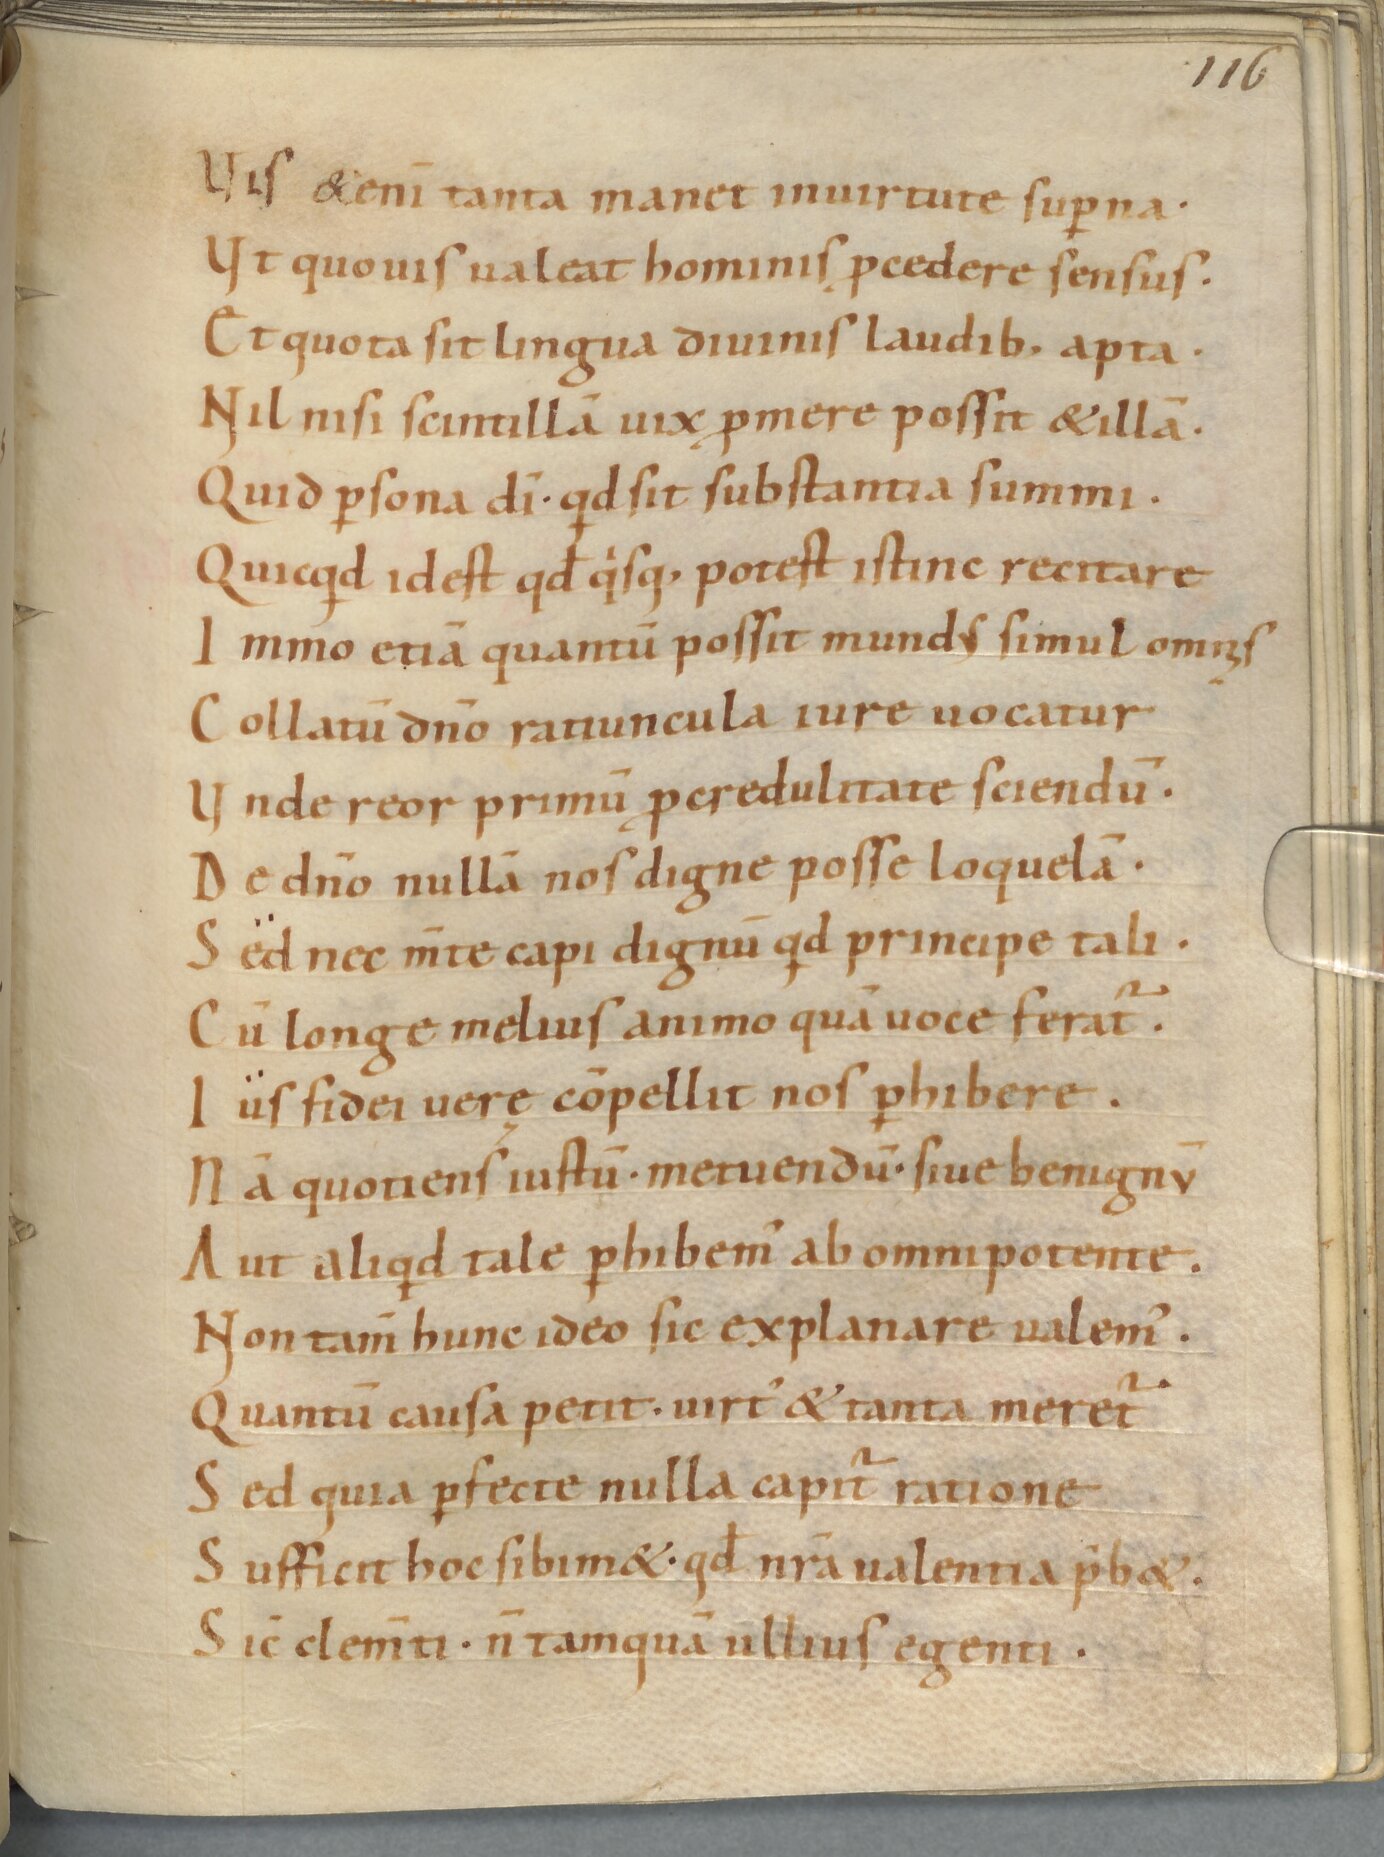 116
Vis &enī tanta manet inuirtute sup̄na·
Vt quouis ualeat hominis p̱cedere sensus·
Et quota sit lingua diuinis laudib, apta·
Nil nisi scintillā uix p̱mere possit &illā·
Quid p̱sona dī· qd sit substantia summi·
Quicqd idest qd̄ qisq, potest istinc recitare
Immo etiā quantū possit mundus simul omnis
Collatū dn̄o ratiuncula iure uocatur
Vnde reor primū p̱credulitate sciendū·
De dn̄o nullā nos digne posse loquelā·
Sed nec m̄te capi dignū qd principe tali·
Cū longe melius animo quā uoce ferat᷑·
Iüs fidei uerę cōpellit nos p̱hibere·
Nā quotiens iustū· metuendū· siue benignū
Aut aliqd tale p̱hibem᾽ ab omnipotente·
Non tam̄ hunc ideo sic explanare ualem᾽·
Quantū causa petit· uirt᾽ & tanta meret᷑·
Sed quia p̱fecte nulla capit᷑ ratione
Sufficit hoc sibim&· qd̄ nr̄a ualentia p̄b&·
Sic̄ clem̄ti· n̄ tamquā ullius egenti·